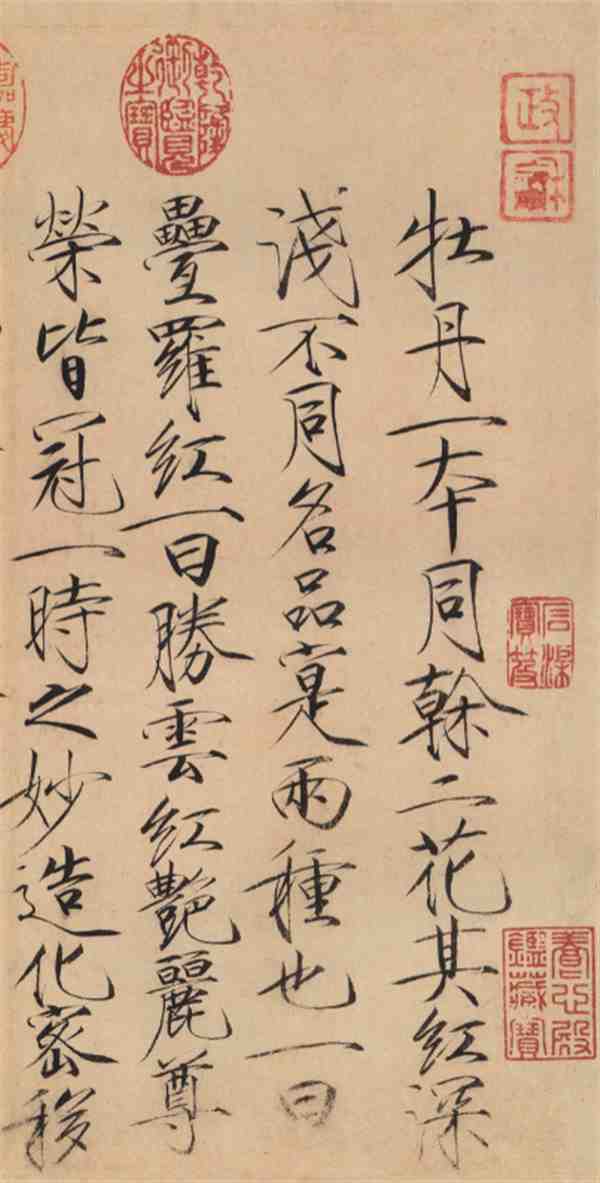 政龢
石渠寶笈
養心殿鑑藏寶
牡丹一本同榦二花其紅深
淺不同名品寔兩種也一曰
乾隆御覽之寶
疊羅紅一曰勝雲紅艷麗尊
榮皆冠一時之妙造化密移
嘉慶